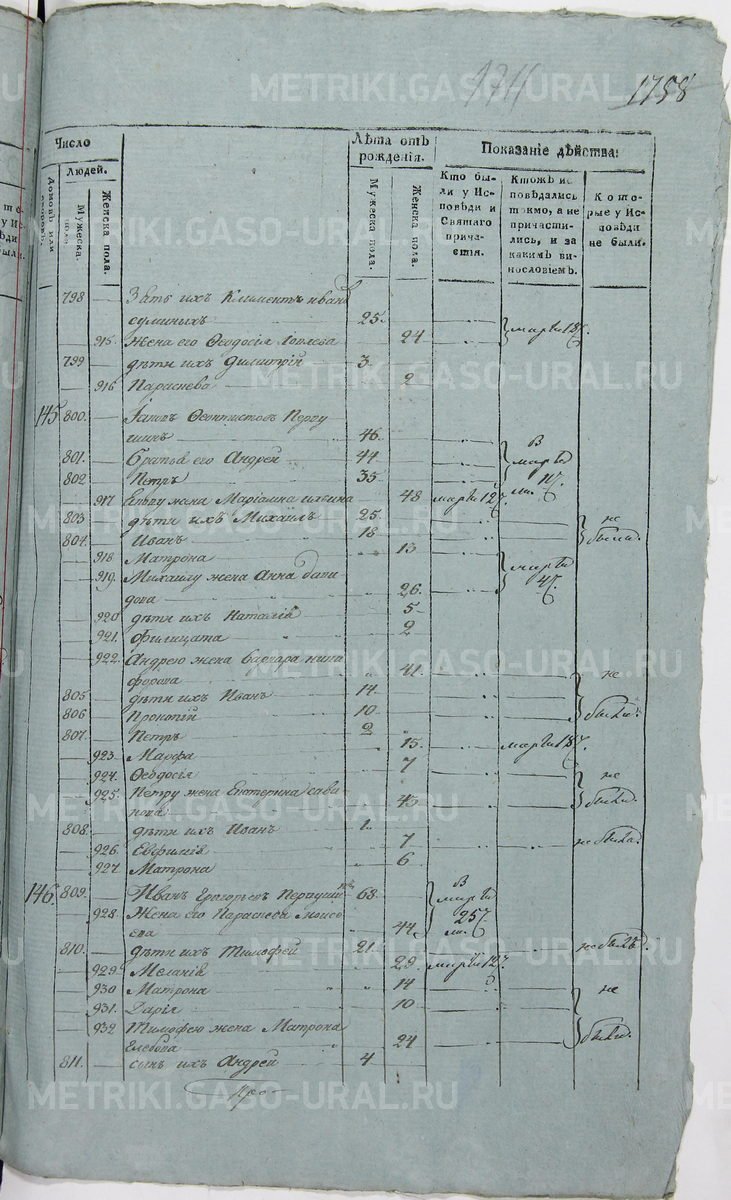 1711 1758
Число Лѣта отъ рожденія. Показаніе дѣйства:
Людей.
Домовъ или
Мужеска пола.
Женска пола.
Мужеска пола.
Женска пола.
Кто были у Исповѣди и Святаго причастія.
Ктожъ исповѣдались токмо, а не причастились, и за какимъ винословіемъ.
Которые у Исповѣди не были.
798 Зять ихъ Климентъ иванъ
25.
915. жена его Ѳеодосія 24 марта 18.
799 дѣти ихъ Димитрій 3.
916 Параснева 2
145 800. Ѳеоктистовъ
46.
801. Братья его Андрей 44 В марта
802 Петръ 35
917. жена Маріамна 48 марта 12.
803 дѣти ихъ Михаилъ 25. не были.
804. Иванъ 18
918. Матрона 13
919. Михаилу жена Анна давидова 26. марта 4.
920 дѣти ихъ Наталія 5
921. Филицата 2
922. Андрею жена Варвара никифорова 41 не
805. дѣти ихъ Иванъ 14.
806 Прокопій 10. были.
807. Петръ 2
923. Марфа 15. марта 18.
924. Ѳеодосія 7 не
925. Петру жена Екатерина савинова 45 были.
808. дѣти ихъ Иванъ 1.
926. Евфимія 7 не были.
927. Матрона 6
146. 809. Иванъ Григорьевъ 68. В марта
928. Жена его Параснева моисеева 44 25
810. дѣти ихъ Тимофей 21. не былъ.
929. Меланія 29 марта 12.
930 Матрона 14 не
931. Дарія 10
932 Тимофею жена Матрона Глебова 24 были.
811. сынъ ихъ Андрей 4
METRIKI.GASO-URAL.RU